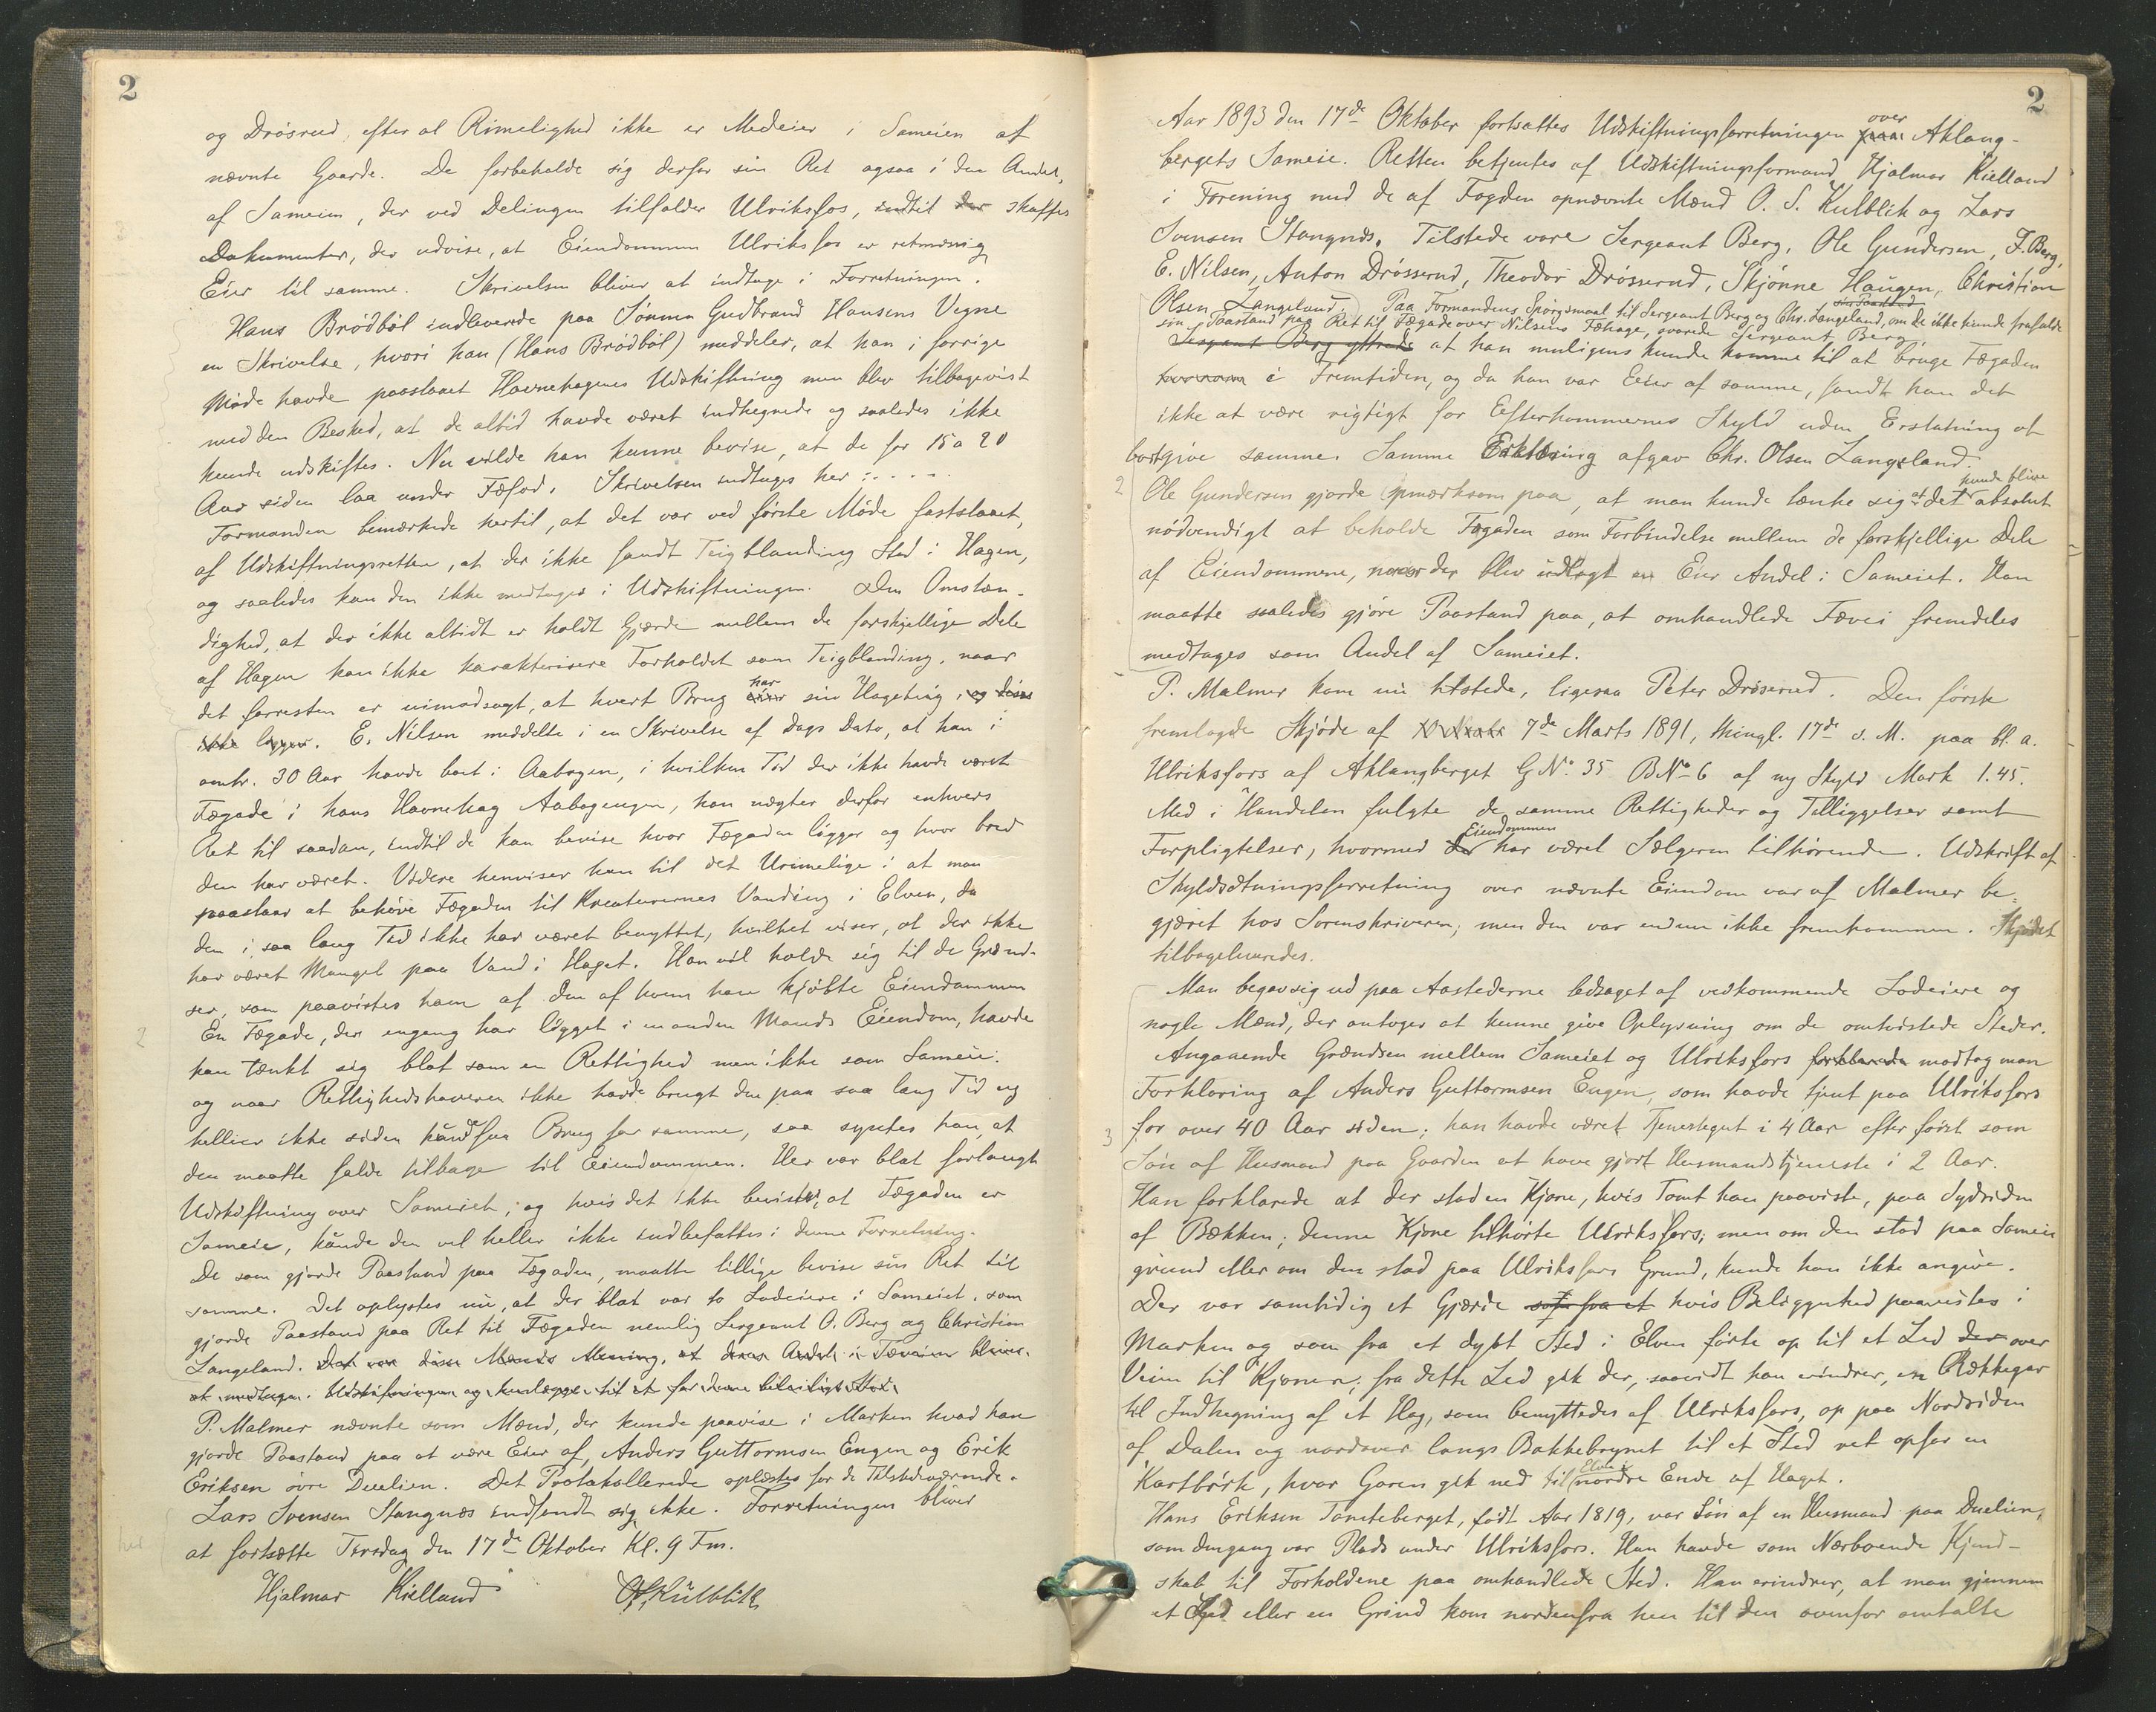 2
og Drösrud, efter al Rimelighed ikke er Medeier i Sameien af
nævnte Gaarde. De forbeholde sig derfor sin Ret ogsaa i den Andel,
af Sameien, der ved Delingen tilfalder Ulriksfos, indtil der skaffes
Dokumenter, der udvise, at Eiendommen Ulriksfos er retmæssig
Eier til samme. Skrivelsen bliver at indtage i Forretningen.
Hans Brödböl indleverede paa Sönnen Gudbrand Hansens Vegne
en Skrivelse, hvori han (Hans Brödböl) meddeler, at han i forrige
Möde havde paastaaet Havnehagenes Udskiftning men blev tilbagevist
med den Besked, at de altid havde været indhegnede og saaledes ikke
kunde udskiftes. Nu vilde han kunne bevise, at de for 15 a 20
Aar siden laa under Fæfod. Skrivelsen indtages her : . . . . .
Formanden bemærkede hertil, at det var ved förste Möde fastslaaet,
af Udskiftningsretten, at der ikke fandt Teigblanding Sted i Hagen,
og saaledes kan den ikke medtages i Udskiftningen. Den Omstæn-
dighed, at der ikke altidt er holdt Gjærde mellem de forskjellige Dele
af Hagen kan ikke karakterisere Forholdet som Teigblanding, naar
det forresten er uimodsagt, at hvert Brug eier har sin Hageteig, og disse
ikke ligger. E. Nilsen meddelte i en Skrivelse af Dags Dato, at han i
omtr. 30 Aar havde boet i Aabogen, i hvilken Tid der ikke havde været
Fægade i hans Havnehag Aabogengen, han nægter derfor enhvers
Ret til saadan, indtil de kan bevise hvor Fægaden ligger og hvor bred
den har været. Videre henviser han til det Urimelige i at man
paastaar at behöve Fægaden til Kreaturernes Vanding i Elven, da
den i saa lang Tid ikke har været benyttet, hvilket viser, at der ikke
har været Mangel paa Vand i Haget. Han vil holde sig til de Grænd-
ser, som paavistes ham af den af hvem han kjöbte Eiendommen
2
En Fægade, der engang har ligget i en anden Mands Eiendom, havde
han tænkt sig blot som en Rettighed men ikke som Sameie.
og naar Rettighedshaveren ikke havde brugt den paa saa lang Tid og
hellier ikke siden havd faa Brug for samme, saa syntes han, at
den maatte falde tilbage til Eiendommen. Her var blot forlangt
Udskiftning over Sameiet; og hvis det ikke bevistes, at Fægaden er
Sameie, kunde den vel heller ikke indbefattes i denne Forretning.
De som gjorde Paastand paa Fægaden, maatte tillige bevise sin Ret til
samme. Det oplystes nu, at der blot var to Lodeiere i Sameiet, som
gjorde Paastand paa Ret til Fægaden nemlig Sergeant O. Berg og Christian
Langeland. Det var disse Mænds Mening, at deres Andel i Fæveien bliver
at medtage i Udskiftningen og henlægges til et for denne beleiligt Sted.
P. Malmer nævnte som Mænd, der kunde paavise i Marken hvad han
gjorde Paastand paa at være Eier af, Anders Guttormsen Engen og Erik
Eriksen övre Duelien. Det Protokollerede oplæstes for de Tilstedeværende.
Lars Svensen Stangnæs indfandt sig ikke. Forretningen bliver
at fortsætte Tirsdag den 17de Oktober Kl. 9 Fm.
Hjalmar Kielland O. S. Kulblik
2
Aar 1893 den 17de Oktober fortsattes Udskiftningsforretningen paa over Aklang-
bergets Sameie. Retten betjentes af Udskiftningsformand Hjalmar Kielland
i Forening med de af Fogden opnævnte Mænd O. S. Kulblik og Lars
Svensen Stangnæs. Tilstede vare Sergeant Berg, Ole Gundersen, J. Berg,
E. Nilsen, Anton Drösserud, Theodor Drösserud, Skjönne Haugen, Christian
Olsen Langeland. Paa Formandens Spörgsmaal til Sergeant Berg og Chr. Langeland, om de ikke kunde frafalde
sin Paastand paa Ret til Fægade over Nilsens Fæhage, svarede Sergeant Berg,
Sergeant Berg yttrede at han muligens kunde komme til at bruge Fægaden
i Fremtiden, og da han var Eeier af samme, fandt han det
ikke at være rigtigt for Eefterkommernes Skyld uden Erstatning at
bortgive samme. Samme Erklæring afgav Chr. Olsen Langeland.
2
Ole Gundersen gjorde opmærksom paa, at man kunde tænke sig at det kunde blive absolut
nödvendigt at beholde Fægaden som Forbindelse mellem de forskjellige Dele
af Eiendommene, naar der blev indlagt en Eier Andel i Sameiet. Han
maatte saaledes gjöre Paastand paa, at omhandlede Fævei fremdeles
medtages som Andel af Sameiet.
P. Malmer kom nu tilstede, ligesaa Peter Dröserud. Den förste
fremlagde Skjöde af 7de Marts 1891, thingl. 17de s. M. paa bl. a.
Ulriksfors af Aklangberget G.No. 35 B.No 6 af ny Skyld Mark 1.45.
Med i Handelen fulgte de samme Rettigheder og Tilliggelser samt
Forpligtelser, hvormed der Eiendommen har været Sælgeren tilhörende. Udskrift af
Skyldsætningsforretning over nævnte Eiendom var af Malmer be-
gjæret hos Sorenskriveren; men den var endnu ikke fremkommen. Skjödet
tilbageleveredes.
Man begav sig ud paa Aastederne ledsaget af vedkommende Lodeiere og
nogle Mænd, der antoges at kunne give Oplysning om de omtvistede Steder.
Angaaende Grændsen mellem Sameiet og Ulriksfors forklarede modtog man
Forklaring af Anders Guttormsen Engen, som havde tjent paa Ulriksfors
3
for over 40 Aar siden; han havde været Tjenestegut i 4 Aar efter först som
Sön af Husmand paa Gaarden at have gjort Husmandstjeneste i 2 Aar.
Han forklarede at der stod en Kjone, hvis Tomt han paaviste, paa Sydsiden
af Bækken; denne Kjone tilhörte Ulriksfors; men om den stod paa Sameie
grund eller om den stod paa Ulriksfors Grund, kunde han ikke angive.
Der var samtidig et Gjærde hvis Beliggenhed paavistes i
Marken og som fra et dybt Sted i Elven förte op til et Led der over
Veien til Kjonen; fra dette Led gik der, saavidt han erindrer, en Rækkegar
til Indhegning af et Hag, som benyttedes af Ulriksfors, op paa Nordsiden
af Dalen og nordover langs Bakkebrynet til et Sted ret opfor en
Kartbirk, hvor Garen gik ned til Elven i nordre Ende af Haget.
Hans Eriksen Tomteberget, födt Aar 1819, var Sön af en Husmand paa Duelien,
som dengang var Plads under Ulriksfors. Han havde som Nærboende Kjend-
skab til Forholdene paa omhandlede Sted. Han erindrer, at man gjennem
et Led eller en Grind kom nordenfra hen til den ovenfor omtalte